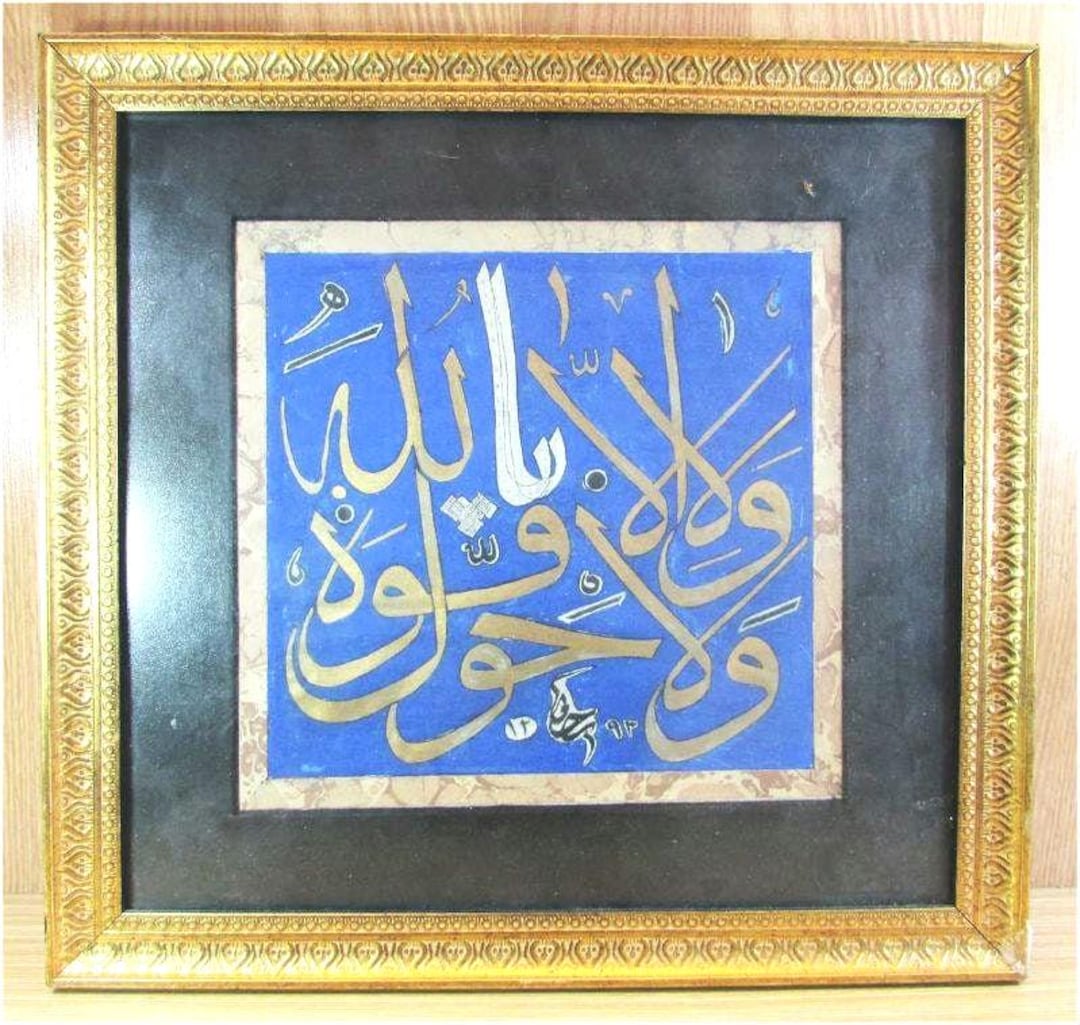 ولا حول ولا قوة الا بالله
١٢ ٩٣